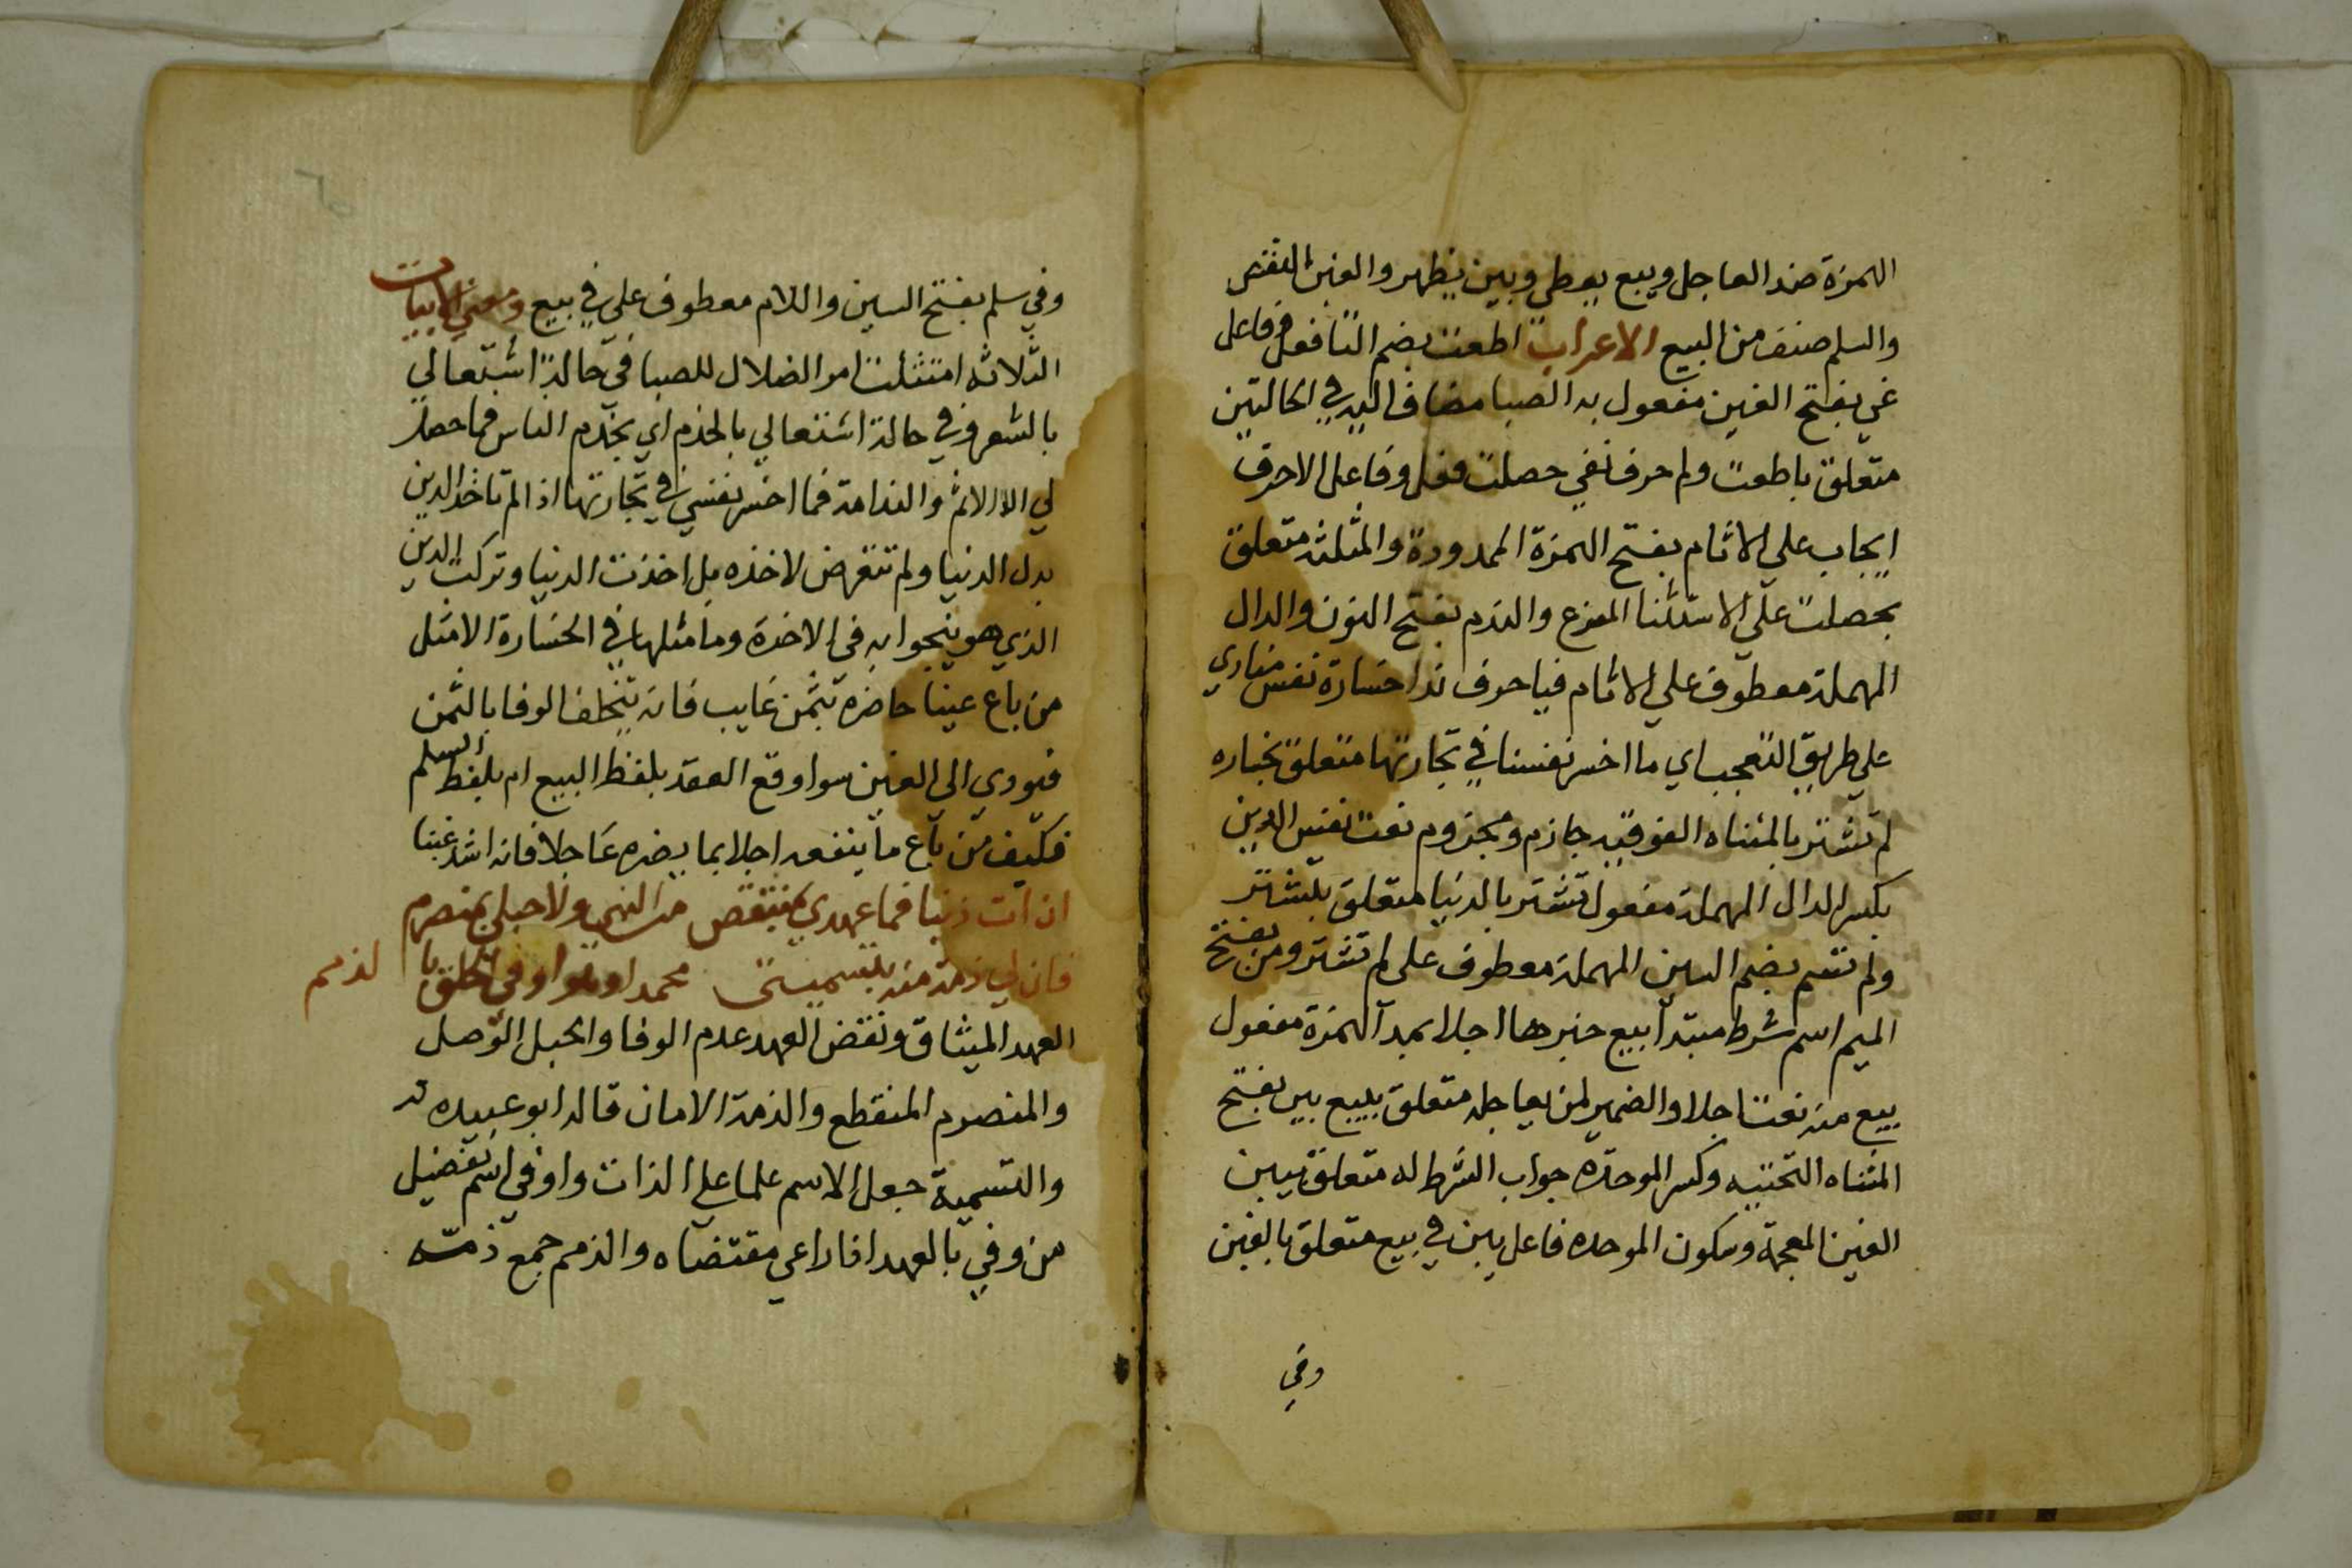 الهمزة ضد العاجل ويبع يعطي ويبين يظهر والغبن النقص
والسلم صنف من البيع الاعراب اطعت بضم التا فعل وفاعل
غي بفتح الغين مفعول به الصبا مضاف اليه في الحالتين
متعلق باطعت ولم حرف نفي حصلت فعل وفاعل الا حرف
ايجاب علي الاثام بفتح الهمزة الممدودة والمثلثه متعلق
بحصلت علي الاستثنا المفرغ والندم بفتح النون والدال
المهملة معطوف علي الاثام فيا حرف ندا خسارة نفس منادي
علي طريق التعجب اي ما اخسر نفسنا في تجارتها متعلق بخساره
لم تشتر بالمثناه الفوقيه جازم ومجزوم نعت نفس الدين
بكسر الدال المهملة مفعول تشتر بالدنيا متعلق بتشتر
ولم تسم بضم السين المهملة معطوف علي لم تشتر ومن بفتح
الميم اسم شرط مبتدا يبع خبرها اجلا بمد الهمزة مفعول
يبع منه نعت اجلا والضمير لمن بعاجله متعلق بيبع يبن بفتح
المثناه التحتيه وكسر الموحده جواب الشرط له متعلق بيبن
الغبن المعجمة وسكون الموحده فاعل يبن في بيع متعلق بالغبن
وفي
وفي سلم بفتح السين واللام معطوف علي في بيع ومعني الابيات
الثلاثه امتثلت امر الضلال للصبا في حالة اشتغالي
بالشعر وفي حالة اشتغالي بالخدم اي بخدم الناس فما حصل
لي الا الاثم والندامة فما اخسر نفسي في تجارتها اذ لم تاخذ الدين
بدل الدنيا ولم تتعرض لاخذه بل اخذت الدنيا وتركت الدين
الذي هو ينجوا به في الاخرة وما مثلها في الخسارة الا مثل
من باع عينا حاضره بثمن غايب فانه يتخلف الوفا بالثمن
فيودي الي الغبن سوا وقع العقد بلفظ البيع ام بلفظ السلم
فكيف من باع ما ينفعه اجلا بما يضره عاجلا فانه اشد غبنا
ان ات ذنبا فما عهدي بمنتقض من النبي ولا حبلي بمنصرم
فان لي ذمة منه بتسميتي محمدا وهو اوفي الخلق با لذمم
العهد الميثاق ونقض العهد عدم الوفا والحبل الوصل
والمنصرم المنقطع والذمة الامان قاله ابو عبيده
والتسمية جعل الاسم علما علي الذات واوفي اسم تفضيل
من وفي بالعهد اذا راعي مقتضاه والذمم جمع ذمته